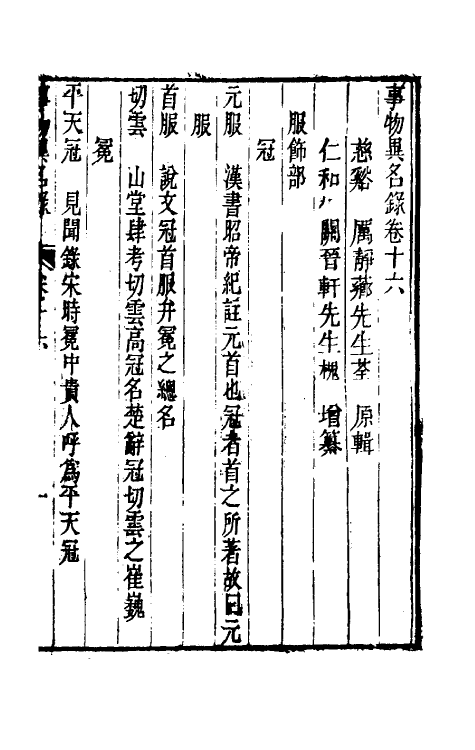 事物異名錄卷十六
慈谿　厲靜薌先生荃　原輯
仁和　關晉軒先生槐　增纂
服飾部
冠
元服　漢書昭帝紀註元首也冠者首之所著故曰元
服
首服　說文冠首服弁冕之總名
切雲　山堂肆考切雲高冠名楚辭冠切雲之崔巍
冕
平天冠　見聞錄宋時冕中貴人呼為平天冠
事物異名錄　卷十六　一